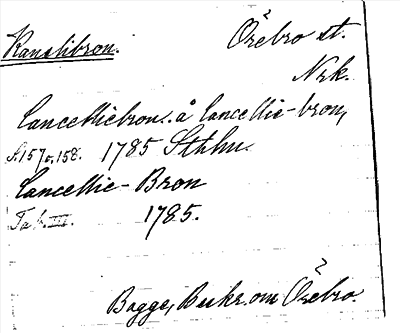 Kanslibron.
Örebro st.
Nrk.
Cancelliebron. å Cancellie-bron,
s. 157 o. 158. 1785 Sthlm.
Cancellie-Bron
Tab. III. 1785.
Bagge, Beskr. om Örebro.